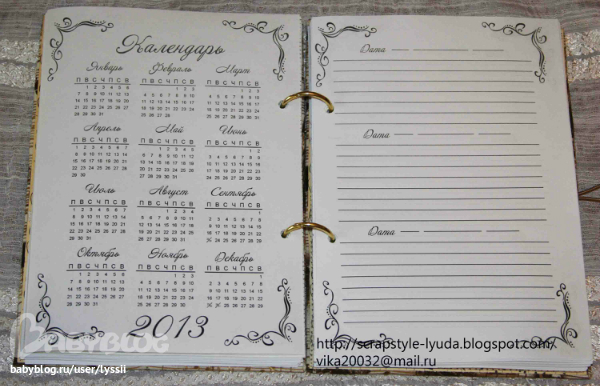 Календарь
Январь Февраль Март
П В С Ч П С В П В С Ч П С В П В С Ч П С В
1 2 3 4 5 6 1 2 3 1 2 3
7 8 9 10 11 12 13 4 5 6 7 8 9 10 4 5 6 7 8 9 10
14 15 16 17 18 19 20 11 12 13 14 15 16 17 11 12 13 14 15 16 17
21 22 23 24 25 26 27 18 19 20 21 22 23 24 18 19 20 21 22 23 24
28 29 30 31 25 26 27 28 25 26 27 28 29 30 31
Апрель Май Июнь
П В С Ч П С В П В С Ч П С В П В С Ч П С В
1 2 3 4 5 6 7 1 2 3 4 5 1 2
8 9 10 11 12 13 14 6 7 8 9 10 11 12 3 4 5 6 7 8 9
15 16 17 18 19 20 21 13 14 15 16 17 18 19 10 11 12 13 14 15 16
22 23 24 25 26 27 28 20 21 22 23 24 25 26 17 18 19 20 21 22 23
29 30 27 28 29 30 31 24 25 26 27 28 29 30
Июль Август Сентябрь
П В С Ч П С В П В С Ч П С В П В С Ч П С В
1 2 3 4 5 6 7 1 2 3 4 1
8 9 10 11 12 13 14 5 6 7 8 9 10 11 2 3 4 5 6 7 8
15 16 17 18 19 20 21 12 13 14 15 16 17 18 9 10 11 12 13 14 15
22 23 24 25 26 27 28 19 20 21 22 23 24 25 16 17 18 19 20 21 22
29 30 31 26 27 28 29 30 31 24 25 26 27 28 29
Октябрь Ноябрь Декабрь
П В С Ч П С В П В С Ч П С В П В С Ч П С В
1 2 3 4 5 6 1 2 3 1
7 8 9 10 11 12 13 4 5 6 7 8 9 10 2 3 4 5 6 7 8
14 15 16 17 18 19 20 11 12 13 14 15 16 17 9 10 11 12 13 14 15
21 22 23 24 25 26 27 18 19 20 21 22 23 24 16 17 18 19 20 21 22
28 29 30 31 25 26 27 28 29 30 25 26 27 28 29
2013
Дата
Дата
Дата
BABYBLOG
babyblog.ru/user/lyssli
http://scrapstyle-lyuda.blogspot.com/
vika20032@mail.ru